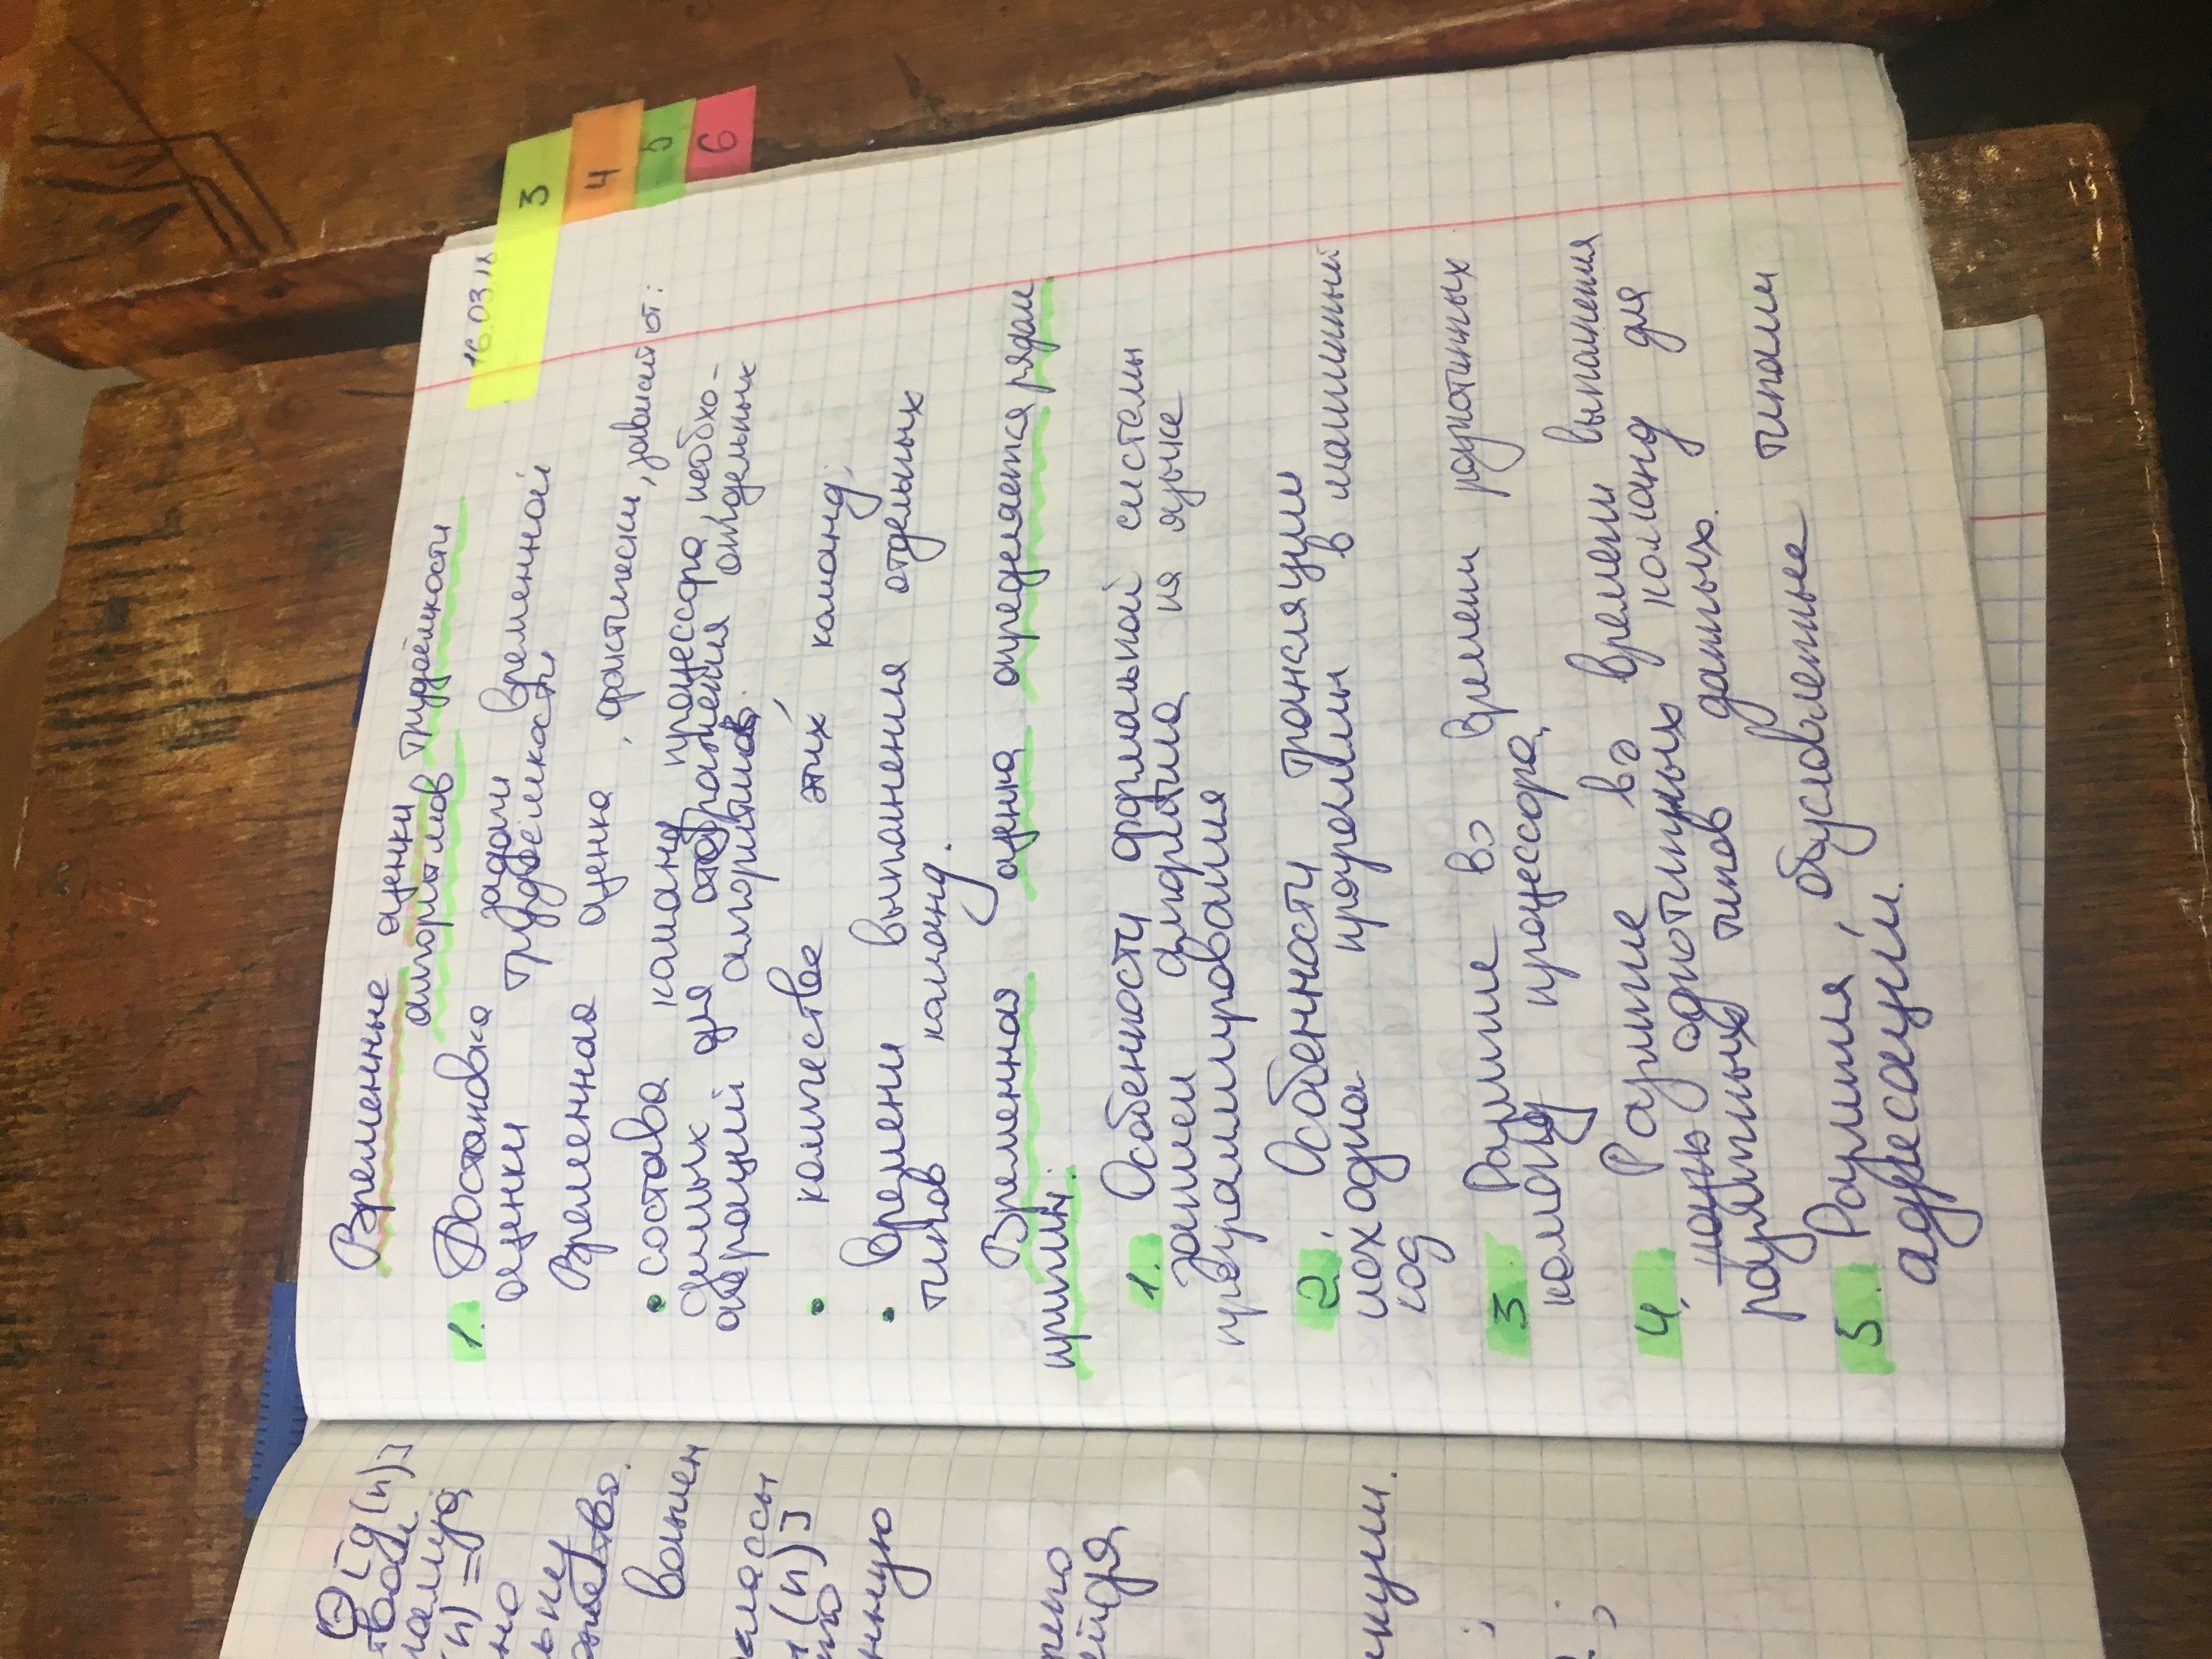 Θ[g(n)]
(n) =
но
важен
классы
(n)]
нную
кции.
Временные оценки трудоёмкости
алгоритмов
16.03.18
3
4
5
6
1. Постановка задачи временной
оценки трудоёмкости
Временная оценка, фактически, зависит от:
• состава команд процессора, необхо-
димых для отображения отдельных
операций алгоритмов;
• количества этих команд;
• времени выполнения отдельных
типов команд.
Временная оценка определяется рядом
причин:
1. Особенности формальной системы
записи алгоритма на языке
программирования
2. Особенности трансляции
исходна программы в машинный
код
3 Различие во времени разнотипных
команд процессора
4. Различие во времени выполнения
разно однотипных команд для
различных типов данных.
5. Различия, обусловленные типами
адресации.